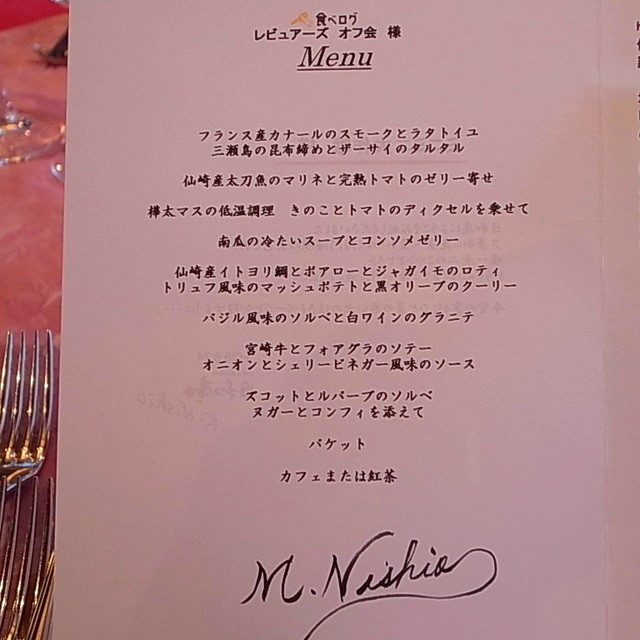 食べログ
レビュアーズ オフ会 様
Menu
フランス産カナールのスモークとラタトイユ
三瀬鳥の昆布締めとザーサイのタルタル
仙崎産太刀魚のマリネと完熟トマトのゼリー寄せ
樺太マスの低温調理 きのことトマトのディクセルを乗せて
南瓜の冷たいスープとコンソメゼリー
仙崎産イトヨリ鯛とポアローとジャガイモのロティ
トリュフ風味のマッシュポテトと黒オリーブのクーリー
バジル風味のソルベと白ワインのグラニテ
宮崎牛とフォアグラのソテー
オニオンとシェリービネガー風味のソース
ズコットとルバーブのソルベ
ヌガーとコンフィを添えて
バケット
カフェまたは紅茶
M. Nishio